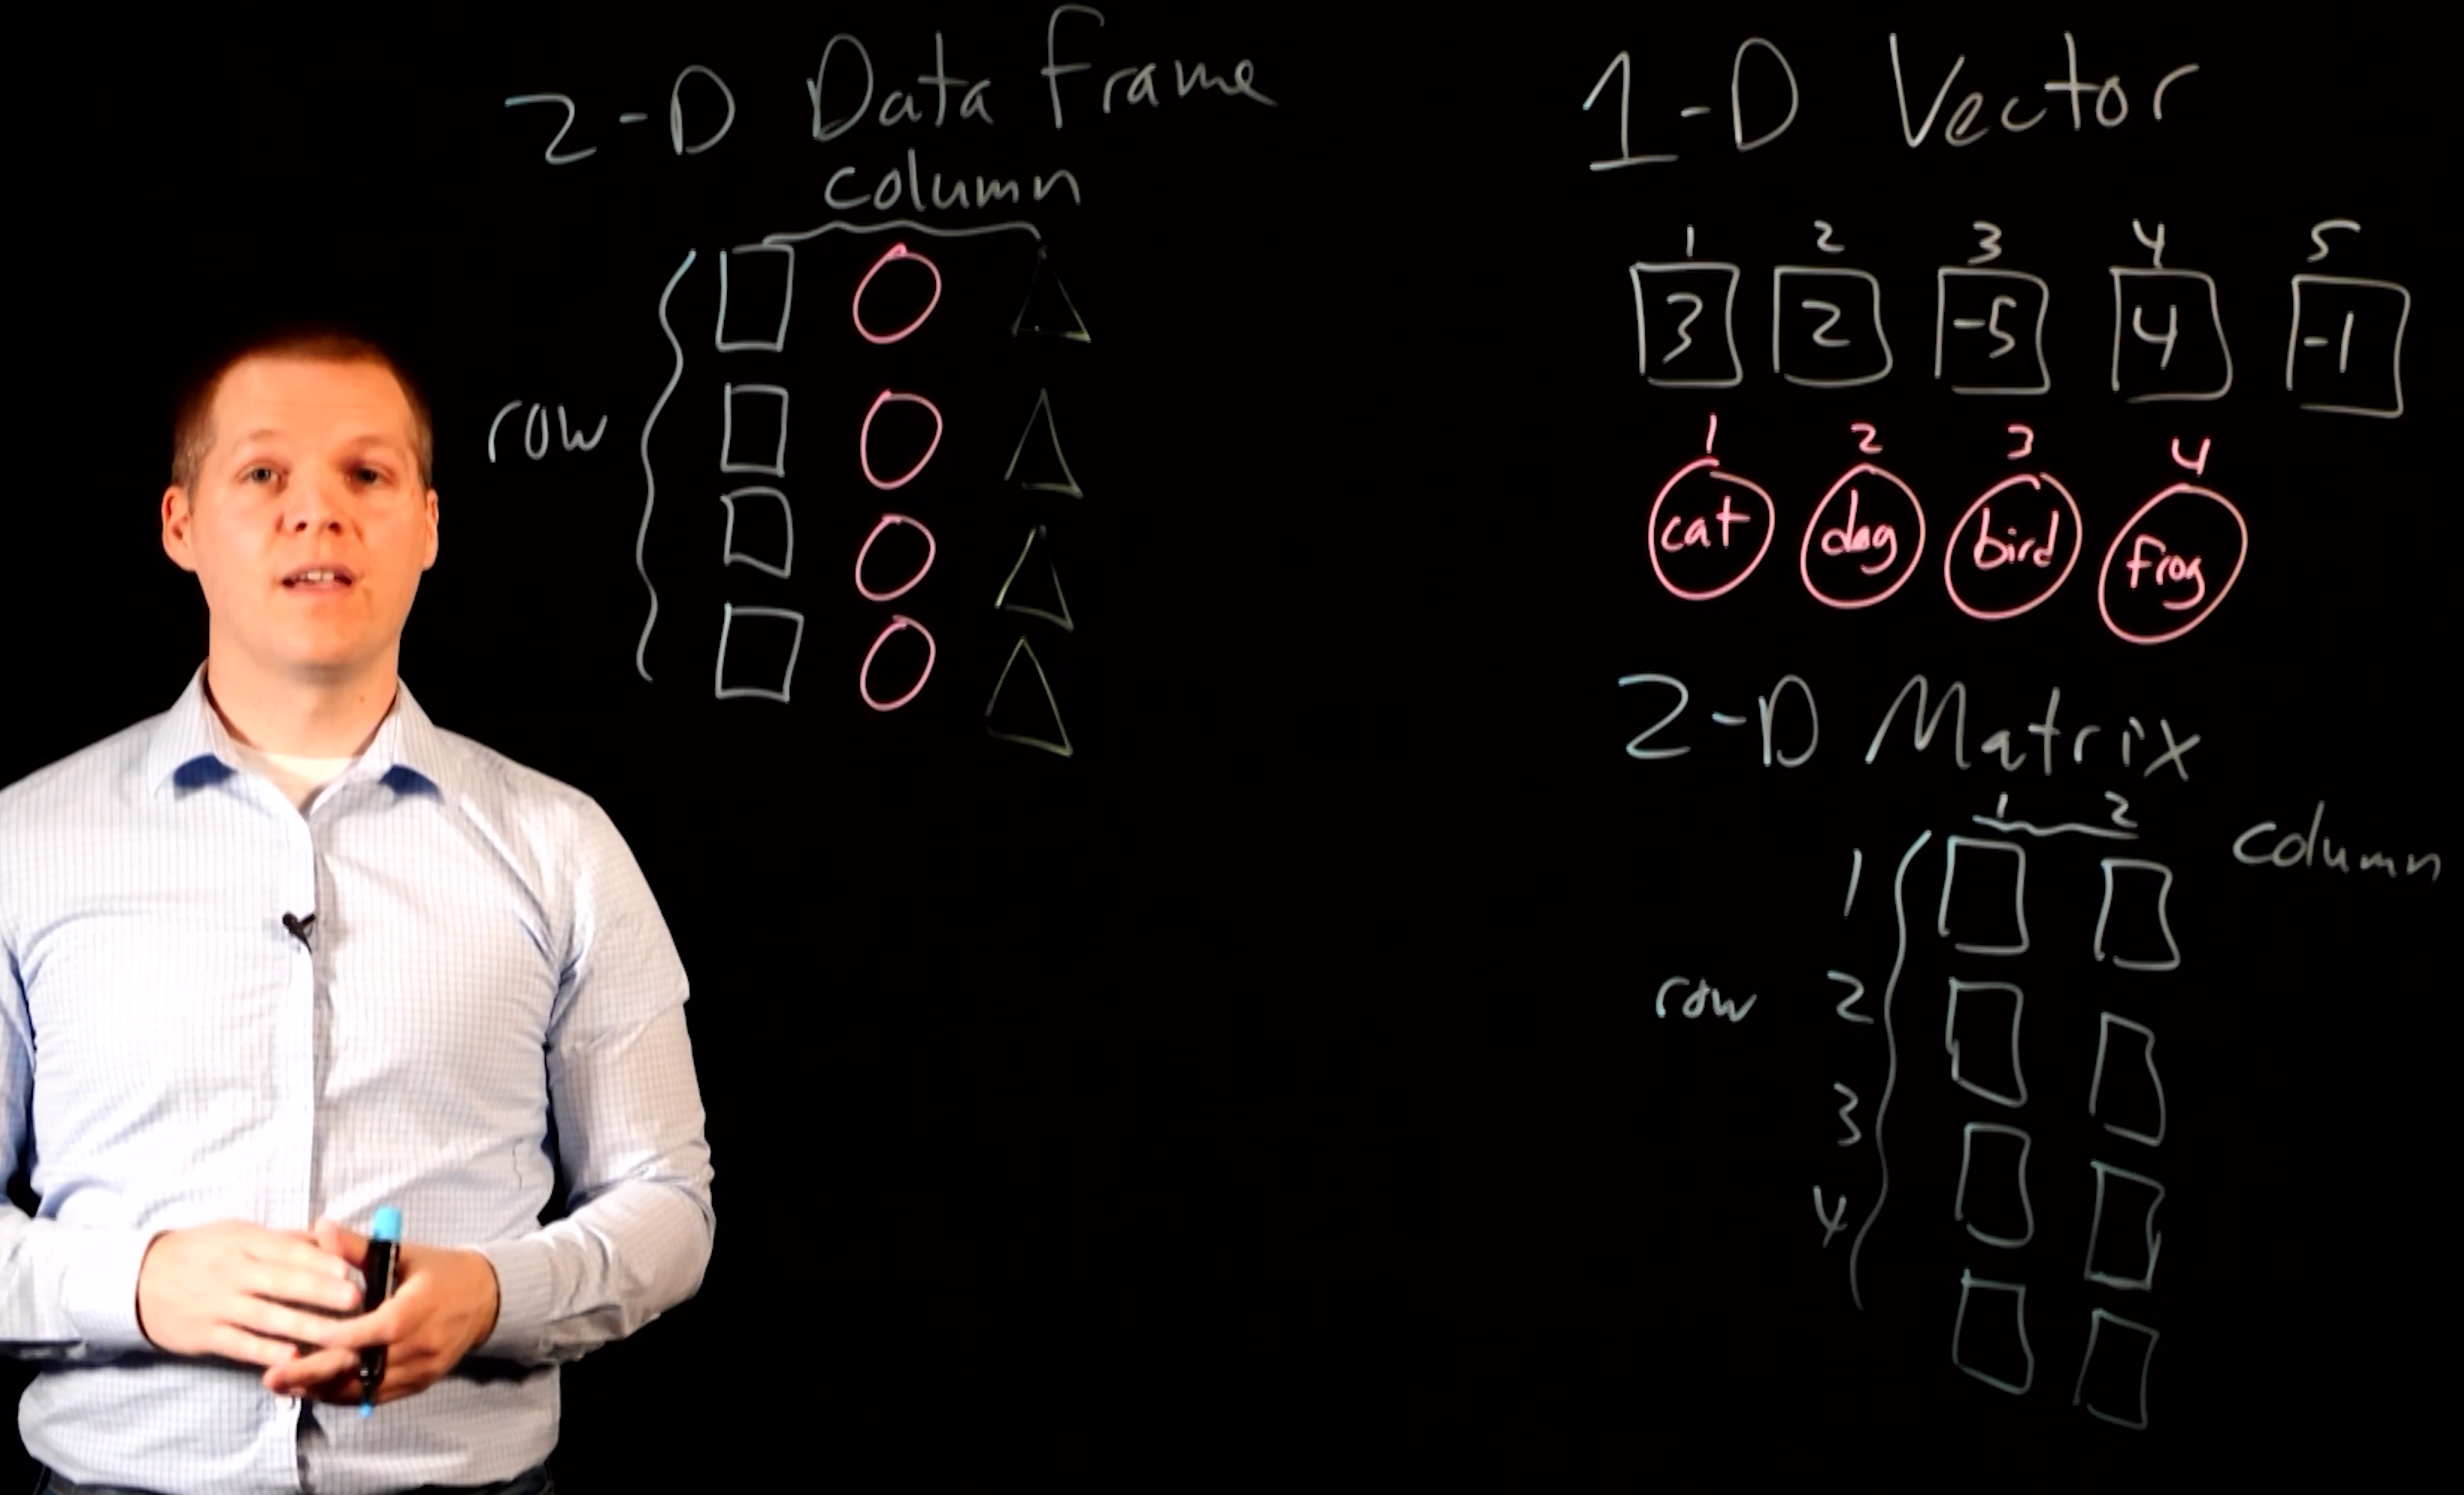 2-D Data Frame
column
row
1-D Vector
1 2 3 4 5
3 2 -5 4 -1
1 2 3 4
cat dog bird frog
2-D Matrix
1 2 column
1
row 2
3
4